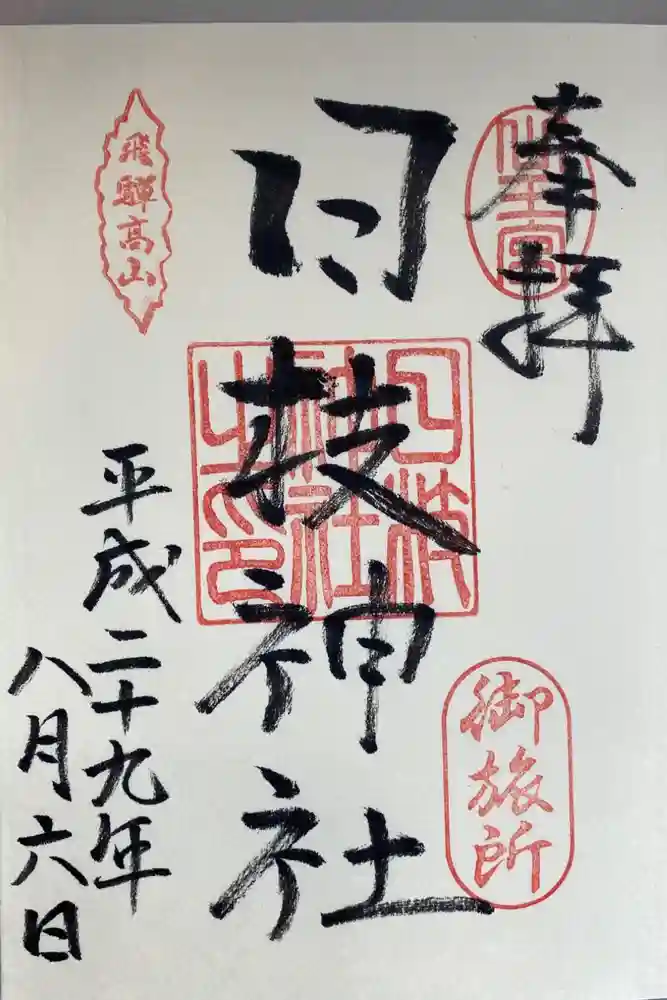 奉拝
山王宮
日枝神社
日枝
神社
之印
御旅所
飛騨高山
平成二十九年
八月六日